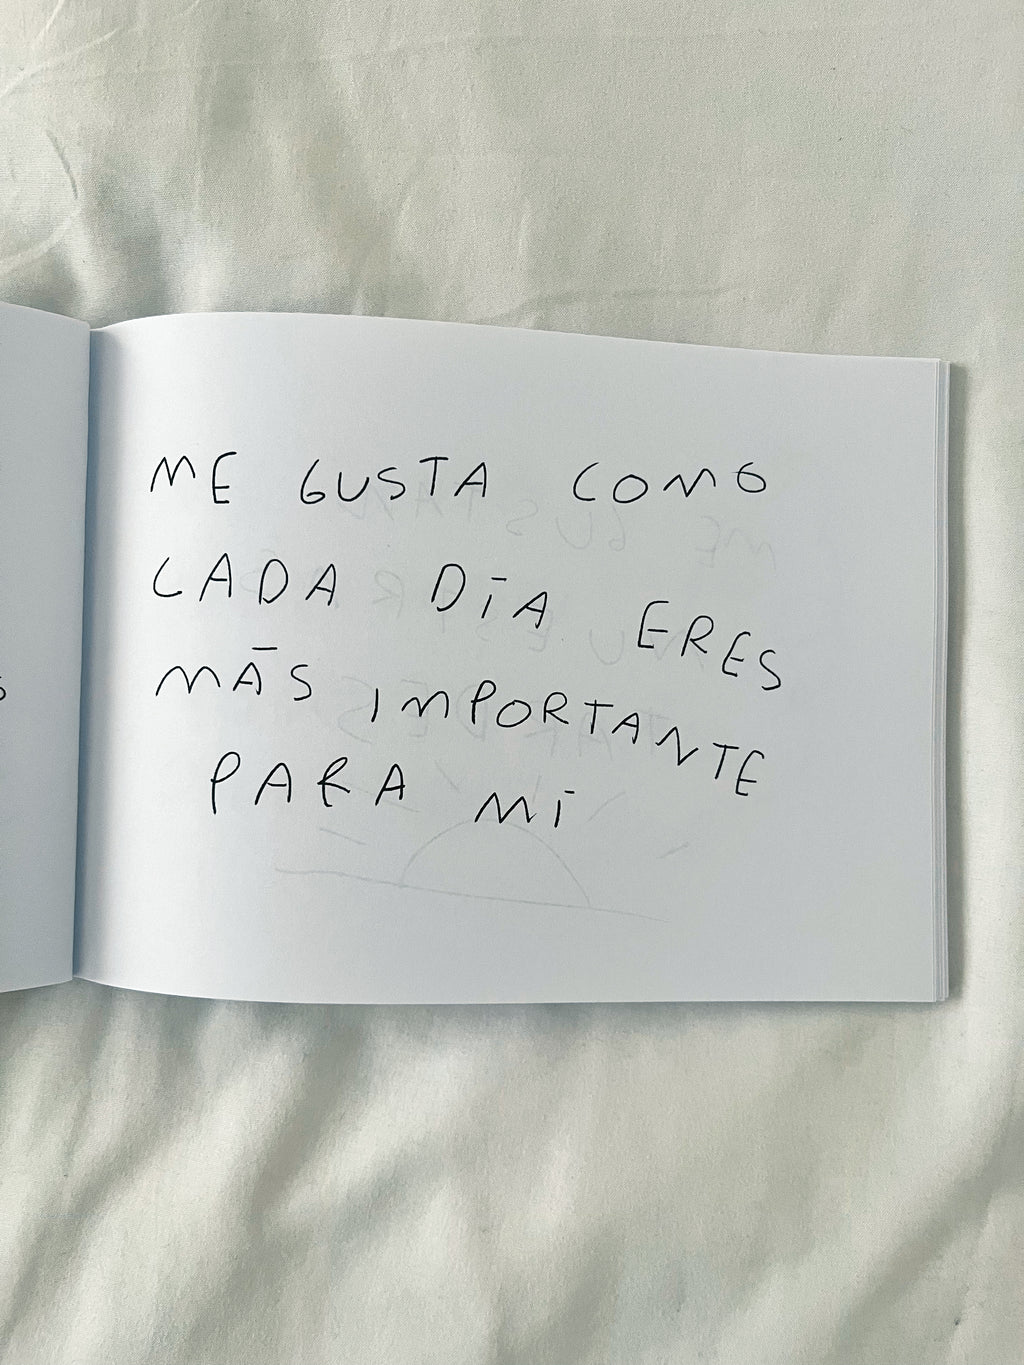 ME GUSTA COMO
CADA DÍA ERES
MÁS IMPORTANTE
PARA MÍ